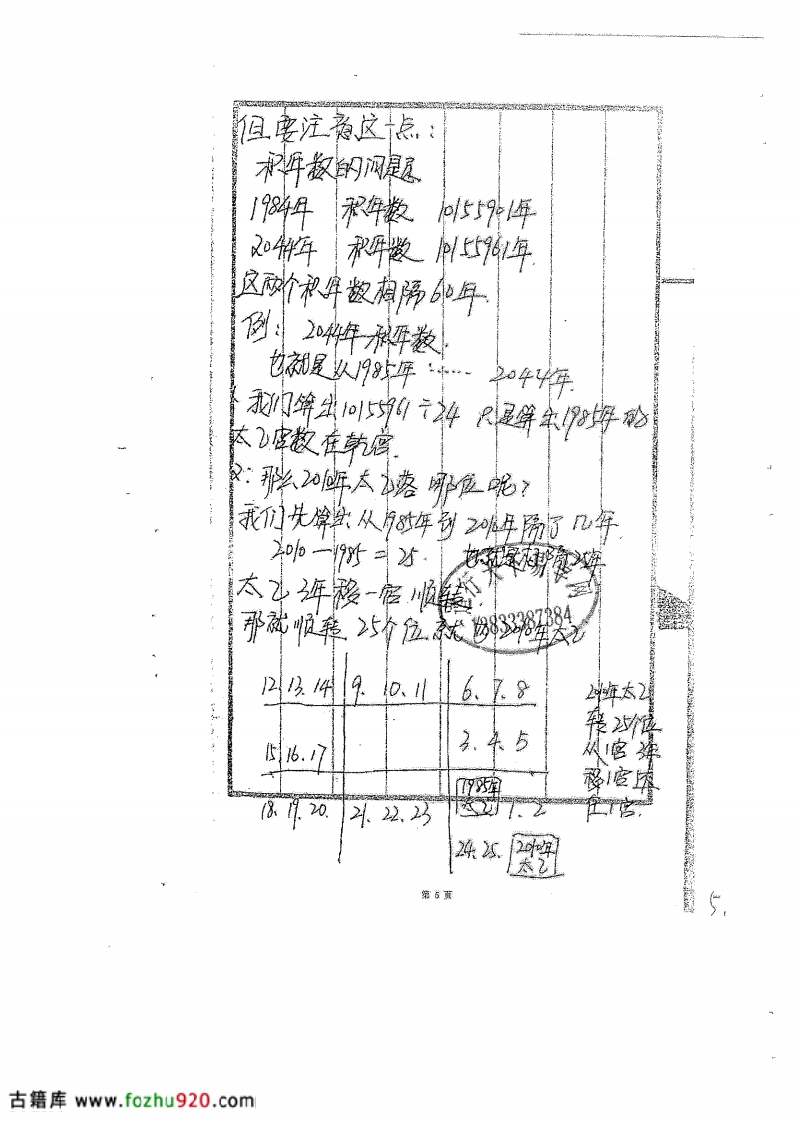 但要注意这一点：
积年数的问题
1984年 积年数 10155901年
2044年 积年数 10155961年.
这两个积年数相隔60年.
例： 2044年积年数.
也就是从1985年…… 2044年.
我们算出10155961÷24 只是算出1985年的
太乙宫数在乾宫.
2：那么2010年太乙落哪位呢？
我们先算出从1985年到2010年隔了几年
2010—1985=25. 也就是相隔25年
太乙3年移一宫 顺转
那就顺转 25个位 就 2010年太乙
12.13.14 9.10.11 6.7.8
15.16.17 3.4.5
1985年
太乙
18.19.20. 21.22.23 1.2
24.25. 2010年
太乙
2010年太乙
转25个位
从1宫3年
移1宫
在1宫.
13833387384
第 5 页
5.
古籍库 www.fozhu920.com